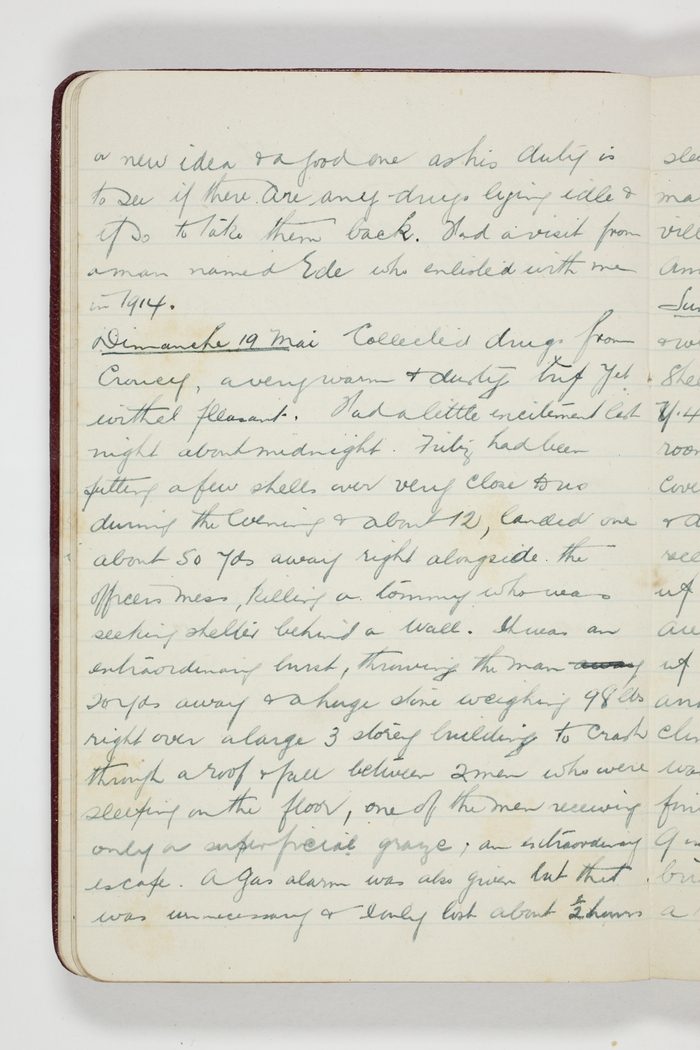 a new idea & a good one as his duty is
to see if there are any drugs lying idle &
if so to take them back. Had a visit from
a man named Ede who enlisted with me
in 1914.
Dimanche 19 Mai Collected drugs from
a very warm & dusty trip yet
withel pleasant. Had a little excitement last
night about midnight. Fritz had been
putting a few shells over very close to us
during the evening & about 12, landed one
about 50 yds away right alongside the
officers mess, killing a tommy who was
seeking shelter behind a wall. It was an
extraordinary burst, throwing the man away
20 yds away & a huge stone weighing 98 lbs
right over a large 3 storey building to crash
through a roof & fall between 2 men who were
sleeping on the floor, one of the men receiving
only a superficial graze; an extraordinary
escape. A gas alarm was also given but that
was unnecessary & I only lost about ½ hours